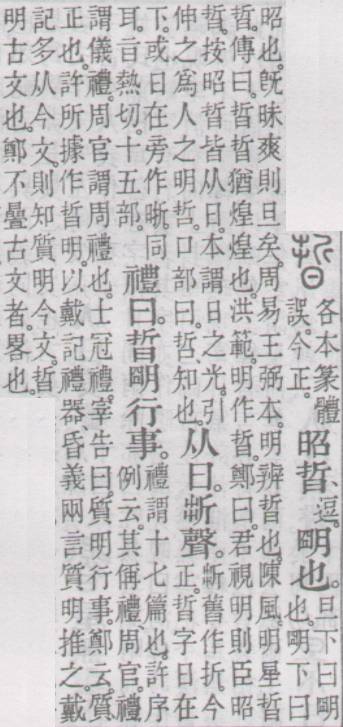 晢
各本篆體
誤。今正。
昭晢、
逗。
朙也。
旦下曰朙
也。朙下曰
昭也。旣昧爽則旦矣。周易王弼本。明辨晢也。陳風。明星晢
晢。傳曰。晢晢猶煌煌也。洪範。明作晢。鄭曰。君視明則臣昭
晢。按昭晢皆从日。本謂日之光。引
伸之爲人之明哲。口部曰。哲知也。
从日。𣂔聲。
𣂔舊作折。今
正。晢字日在
下。或日在旁作晣。同
耳。旨熱切。十五部。
禮曰。晢朙行事。
禮謂十七篇也。許序
例云。其偁禮、周官。禮
謂儀禮。周官謂周禮也。士冠禮。宰告曰。質明行事。鄭云。質
正也。許所據作晢明。以戴記禮器、昏義兩言質明推之。戴
記多从今文。則知質明今文。晢
明古文也。鄭不疊古文者。畧也。